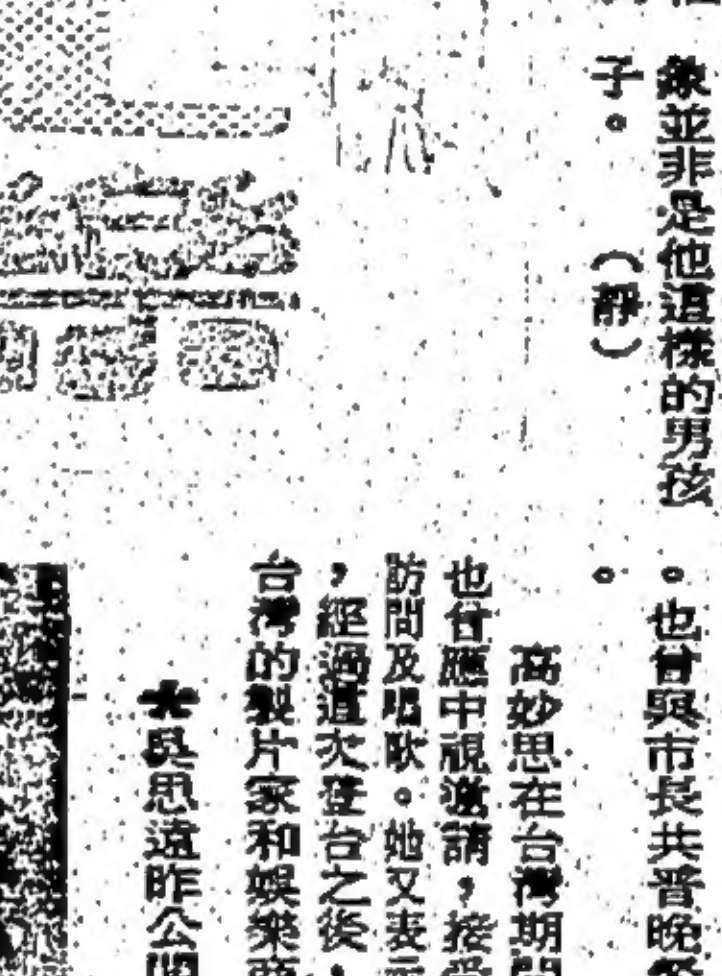 象並非是他這樣的男孩
子。（靜）
。也曾與市長共晉晚
。
高妙思在台灣期間
也曾應中視邀請，接受
訪問及唱歌。她又表示
，經過這次登台之後，
台灣的製片家和娛樂商
★吳思遠昨公開